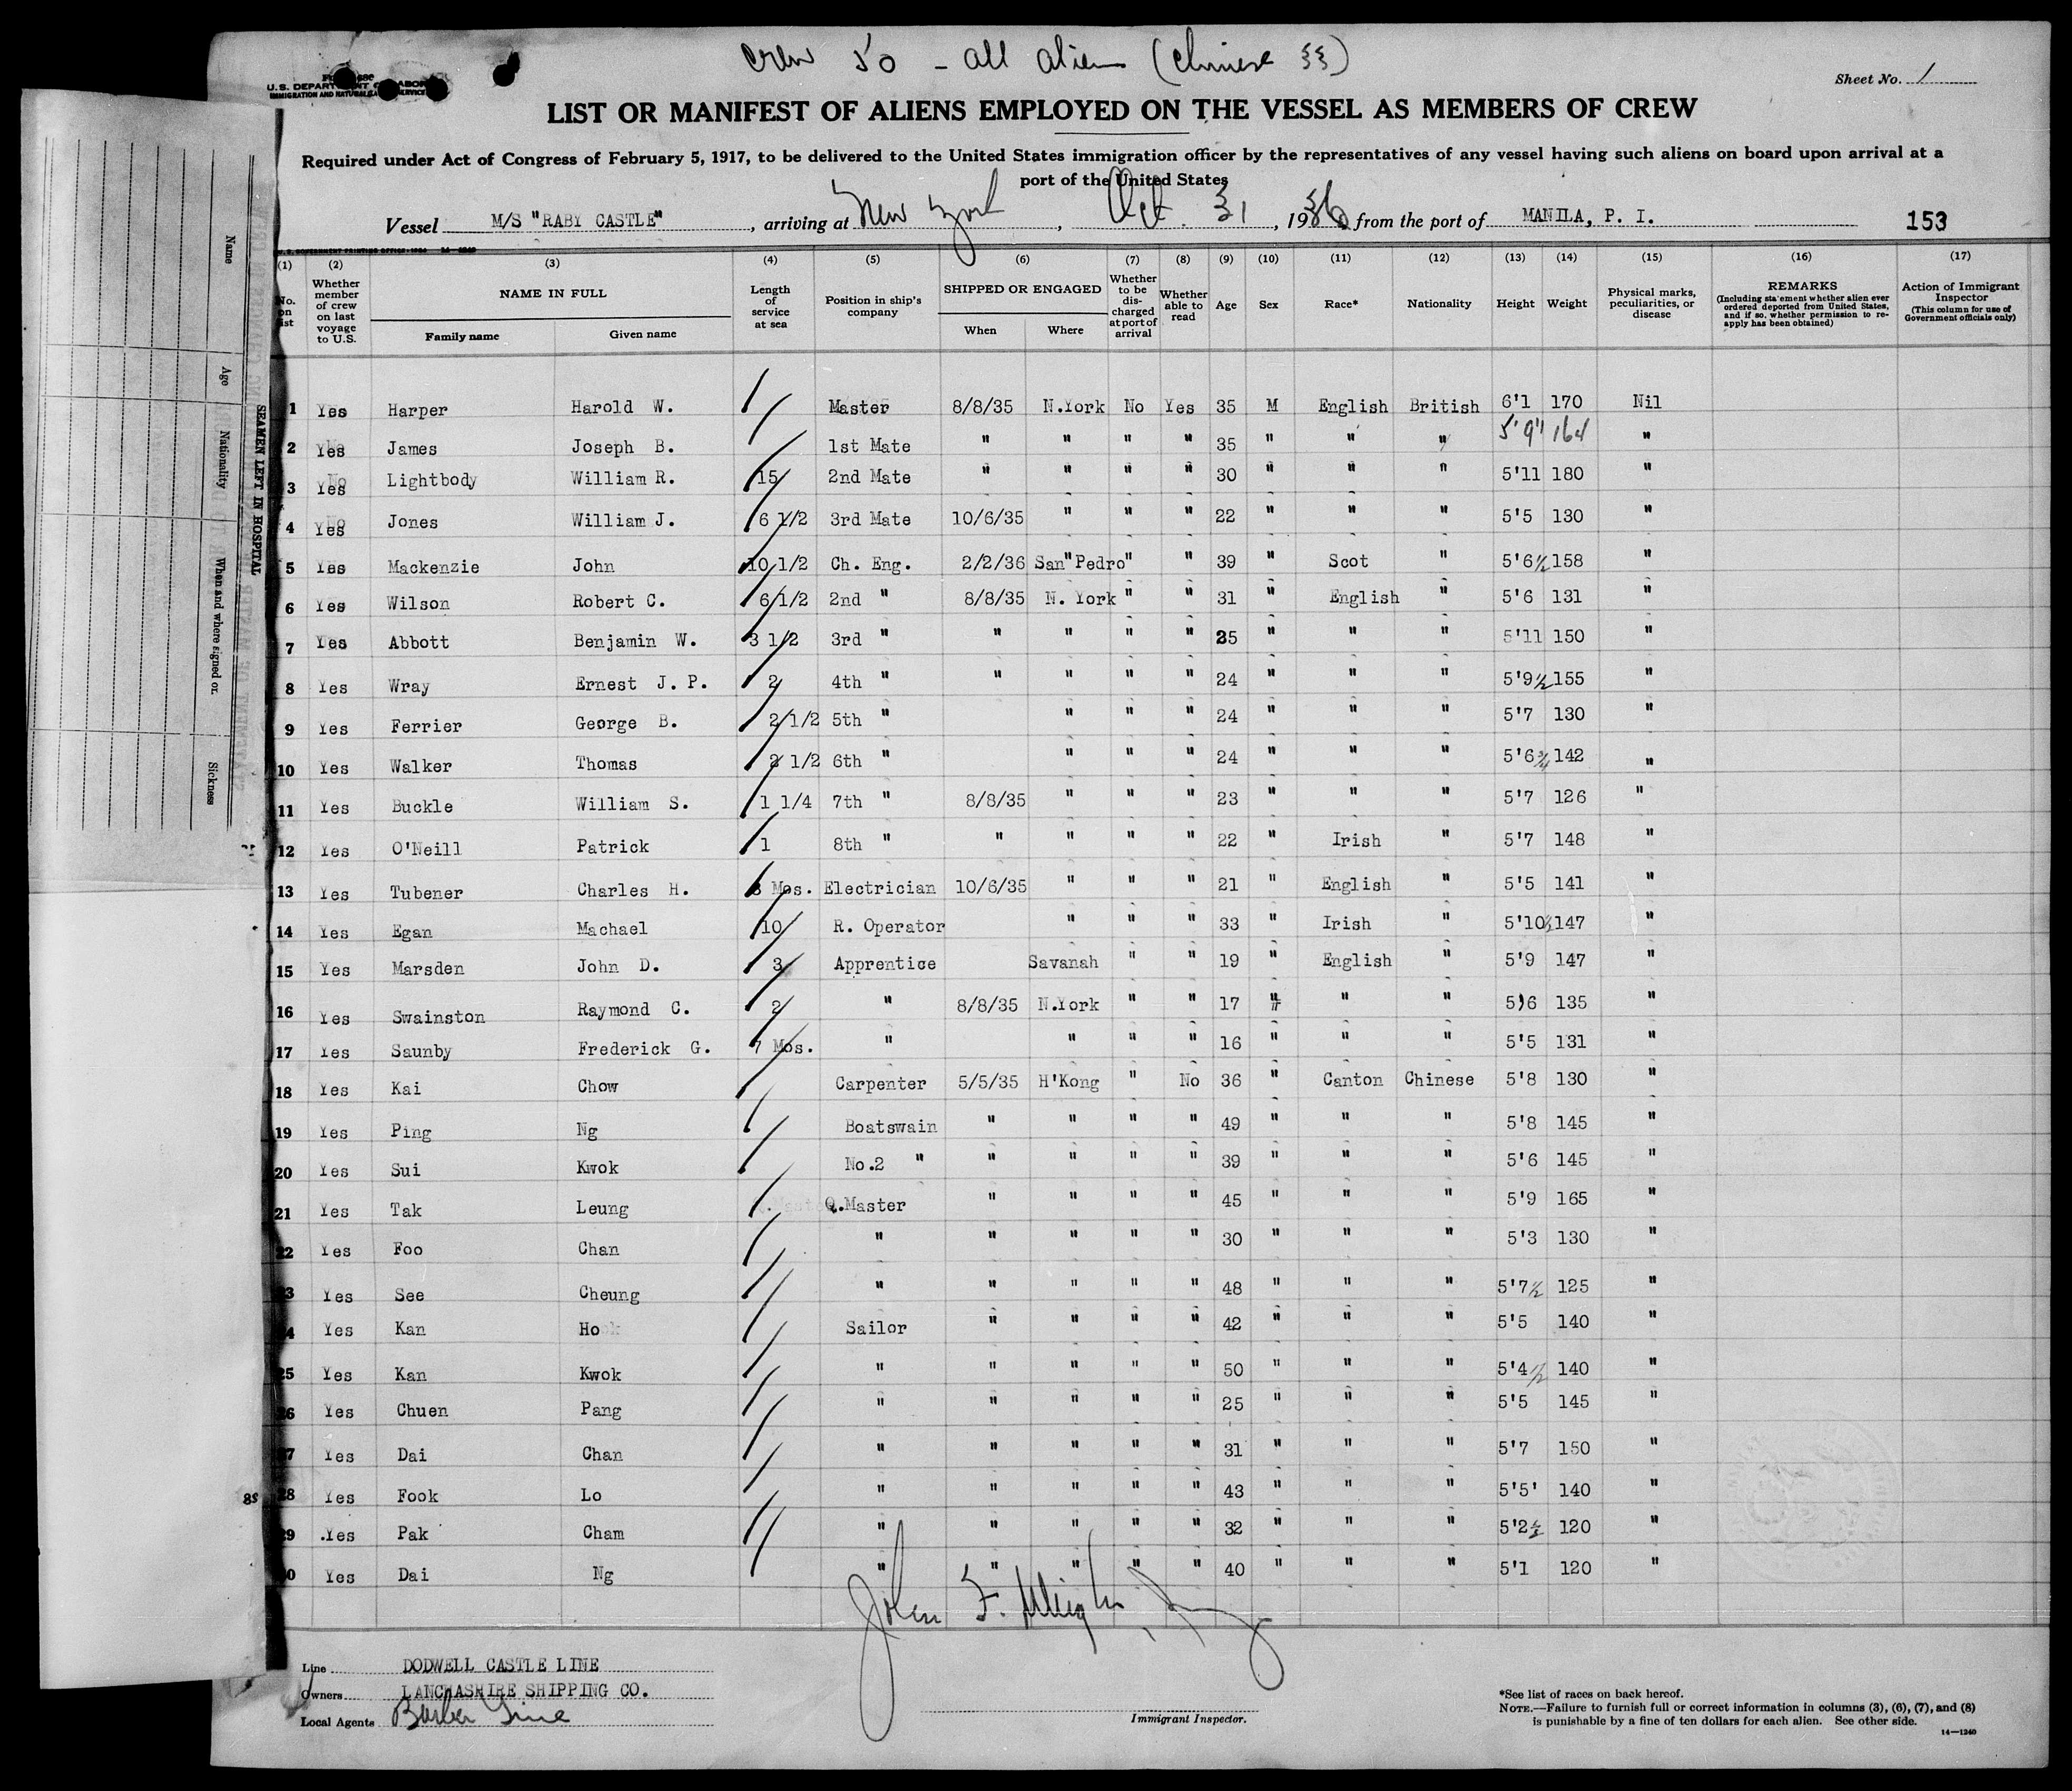 crew 50 - all alien (Chinese 33)
U.S. DEPARTMENT OF LABOR
IMMIGRATION AND NATURALIZATION SERVICE
Sheet No. 1
LIST OR MANIFEST OF ALIENS EMPLOYED ON THE VESSEL AS MEMBERS OF CREW
Required under Act of Congress of February 5, 1917, to be delivered to the United States immigration officer by the representatives of any vessel having such aliens on board upon arrival at a
port of the United States
Vessel M/S "RABY CASTLE", arriving at New York, Oct. 31, 1936 from the port of MANILA, P. I. 153
(1) (2) (3) (4) (5) (6) (7) (8) (9) (10) (11) (12) (13) (14) (15) (16) (17)
No. on list Whether member of crew on last voyage to U.S. NAME IN FULL Family name Given name Length of service at sea Position in ship's company SHIPPED OR ENGAGED When Where Whether to be discharged at port of arrival Whether able to read Age Sex Race* Nationality Height Weight Physical marks, peculiarities, or disease REMARKS (Including statement whether alien ever ordered deported from United States, and if so, whether permission to reapply has been obtained) Action of Immigrant Inspector (This column for use of Government officials only)
1 Yes Harper Harold W. Master 8/8/35 N.York No Yes 35 M English British 6'1 170 Nil
2 Yes James Joseph B. 1st Mate " " " " 35 " " " 5'9" 164 "
3 Yes Lightbody William R. 15 2nd Mate " " " " 30 " " " 5'11 180 "
4 Yes Jones William J. 6 1/2 3rd Mate 10/6/35 " " " 22 " " " 5'5 130 "
5 Yes Mackenzie John 10 1/2 Ch. Eng. 2/2/36 San"Pedro " " 39 " Scot " 5'6 1/2 158 "
6 Yes Wilson Robert C. 6 1/2 2nd " 8/8/35 N. York " " 31 " English " 5'6 131 "
7 Yes Abbott Benjamin W. 3 1/2 3rd " " " " " 25 " " " 5'11 150 "
8 Yes Wray Ernest J. P. 2 4th " " " " " 24 " " " 5'9 1/2 155 "
9 Yes Ferrier George B. 2 1/2 5th " " " " 24 " " " 5'7 130 "
10 Yes Walker Thomas 2 1/2 6th " " " " 24 " " " 5'6 3/4 142 "
11 Yes Buckle William S. 1 1/4 7th " 8/8/35 " " " 23 " " " 5'7 126 "
12 Yes O'Neill Patrick 1 8th " " " " " 22 " Irish " 5'7 148 "
13 Yes Tubener Charles H. 8 Mos. Electrician 10/6/35 " " " 21 " English " 5'5 141 "
14 Yes Egan Machael 10 R. Operator " " " 33 " Irish " 5'10 1/2 147 "
15 Yes Marsden John D. 3 Apprentice Savanah " " 19 " English " 5'9 147 "
16 Yes Swainston Raymond C. 2 " 8/8/35 N.York " " 17 " " " 5'6 135 "
17 Yes Saunby Frederick G. 7 Mos. " " " " 16 " " " 5'5 131 "
18 Yes Kai Chow Carpenter 5/5/35 H'Kong " No 36 " Canton Chinese 5'8 130 "
19 Yes Ping Ng Boatswain " " " " 49 " " " 5'8 145 "
20 Yes Sui Kwok No.2 " " " " " 39 " " " 5'6 145 "
21 Yes Tak Leung Q.Master " " " " 45 " " " 5'9 165 "
22 Yes Foo Chan " " " " " 30 " " " 5'3 130 "
23 Yes See Cheung " " " " " 48 " " " 5'7 1/2 125 "
24 Yes Kan Ho Sailor " " " " 42 " " " 5'5 140 "
25 Yes Kan Kwok " " " " " 50 " " " 5'4 1/2 140 "
26 Yes Chuen Pang " " " " " 25 " " " 5'5 145 "
27 Yes Dai Chan " " " " " 31 " " " 5'7 150 "
28 Yes Fook Lo " " " " " 43 " " " 5'5' 140 "
29 Yes Pak Cham " " " " " 32 " " " 5'2 1/2 120 "
30 Yes Dai Ng " " " " " 40 " " " 5'1 120 "
John F.
Line DODWELL CASTLE LINE
Owners LANCHASHIRE SHIPPING CO.
Local Agents Barber Line
Immigrant Inspector.
*See list of races on back hereof.
NOTE.—Failure to furnish full or correct information in columns (3), (6), (7), and (8)
is punishable by a fine of ten dollars for each alien. See other side.
14—1240
SEAMEN LEFT IN HOSPITAL
Name
Age
Nationality
When and where signed on
Sickness